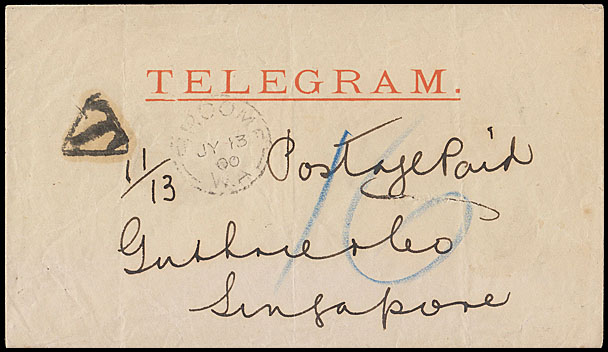 TELEGRAM.
BROOME
JY 13
00
W.A
T
11/13
Postage Paid
16
Guthrie & Co
Singapore